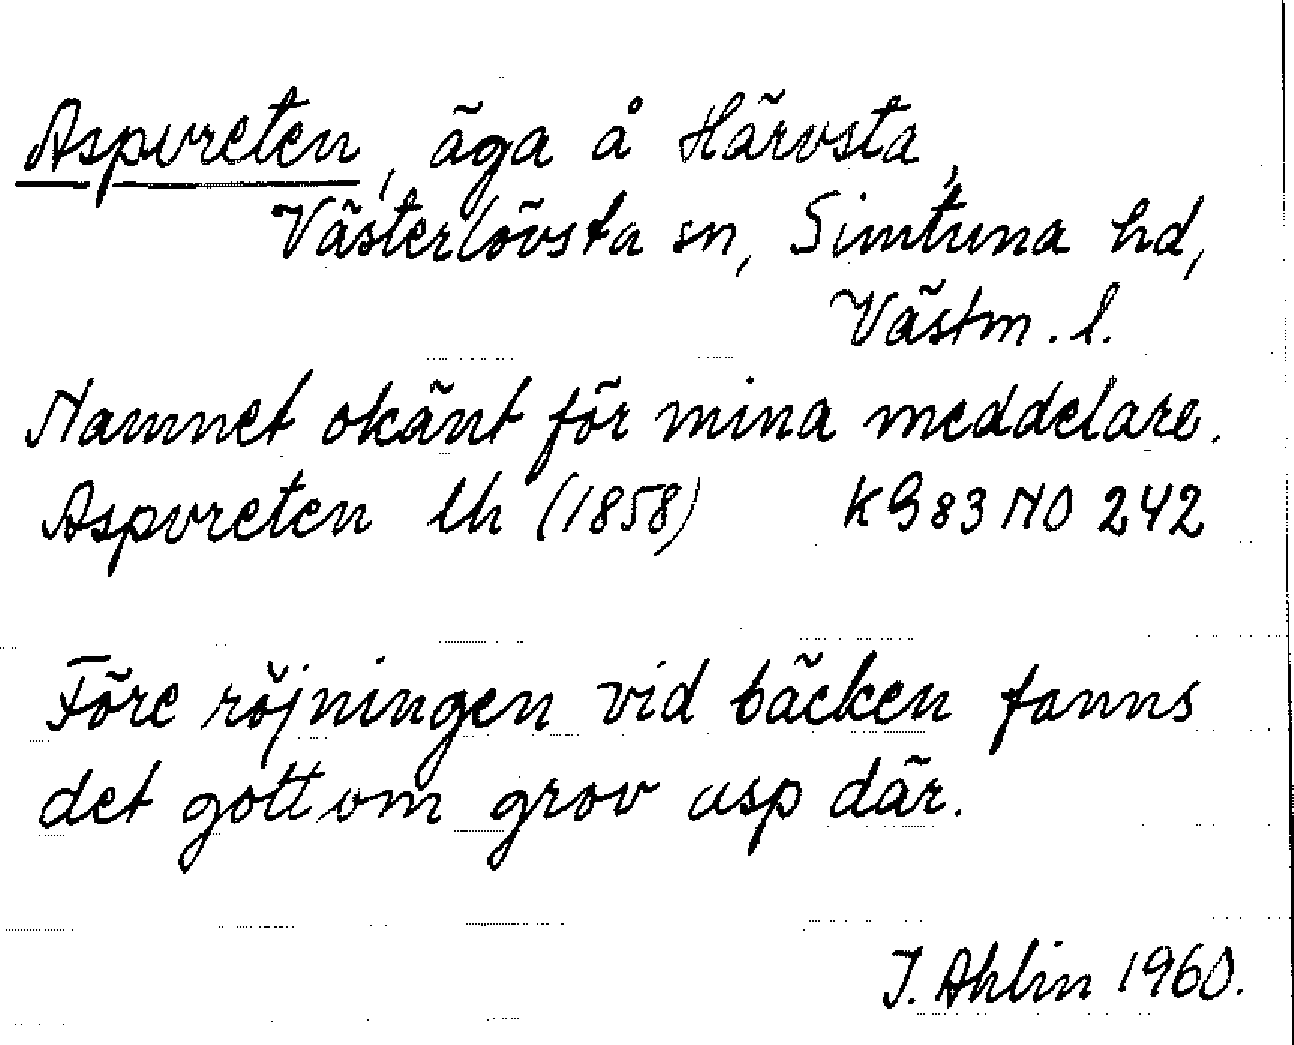 Aspvreten, äga å Härvsta,
Västerlövsta sn, Simtuna hd,
Västm. l.
Namnet okänt för mina meddelare.
Aspvreten lh (1858) KG 83 NO 242
Före röjningen vid bäcken fanns
det gott om grov asp där.
J. Ahlin 1960.